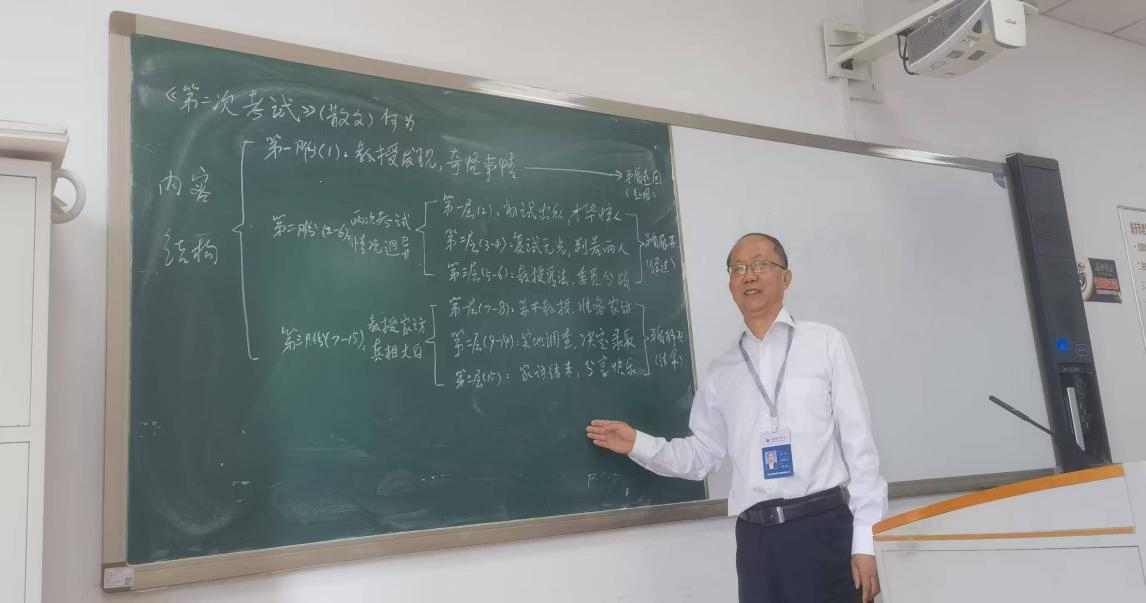 《第二次考试》(散文) 何为
内容
结构
第一部分(1)：教授发现,奇怪事情
矛盾起因
(起因)
第二部分(2-6)：两次考试
情况迥异
第一层(2)：初试出众,才华惊人
第二层(3-4)：复试无光,判若两人
第三层(5-6)：教授看法,委员分歧
(经过)
第三部分(7-15)：教授家访
真相大白
第一层(7-8)：苏林教授,准备家访
第二层(9-14)：实地调查,决定录取
第三层(15)：家访结束,分享快乐
(结果)